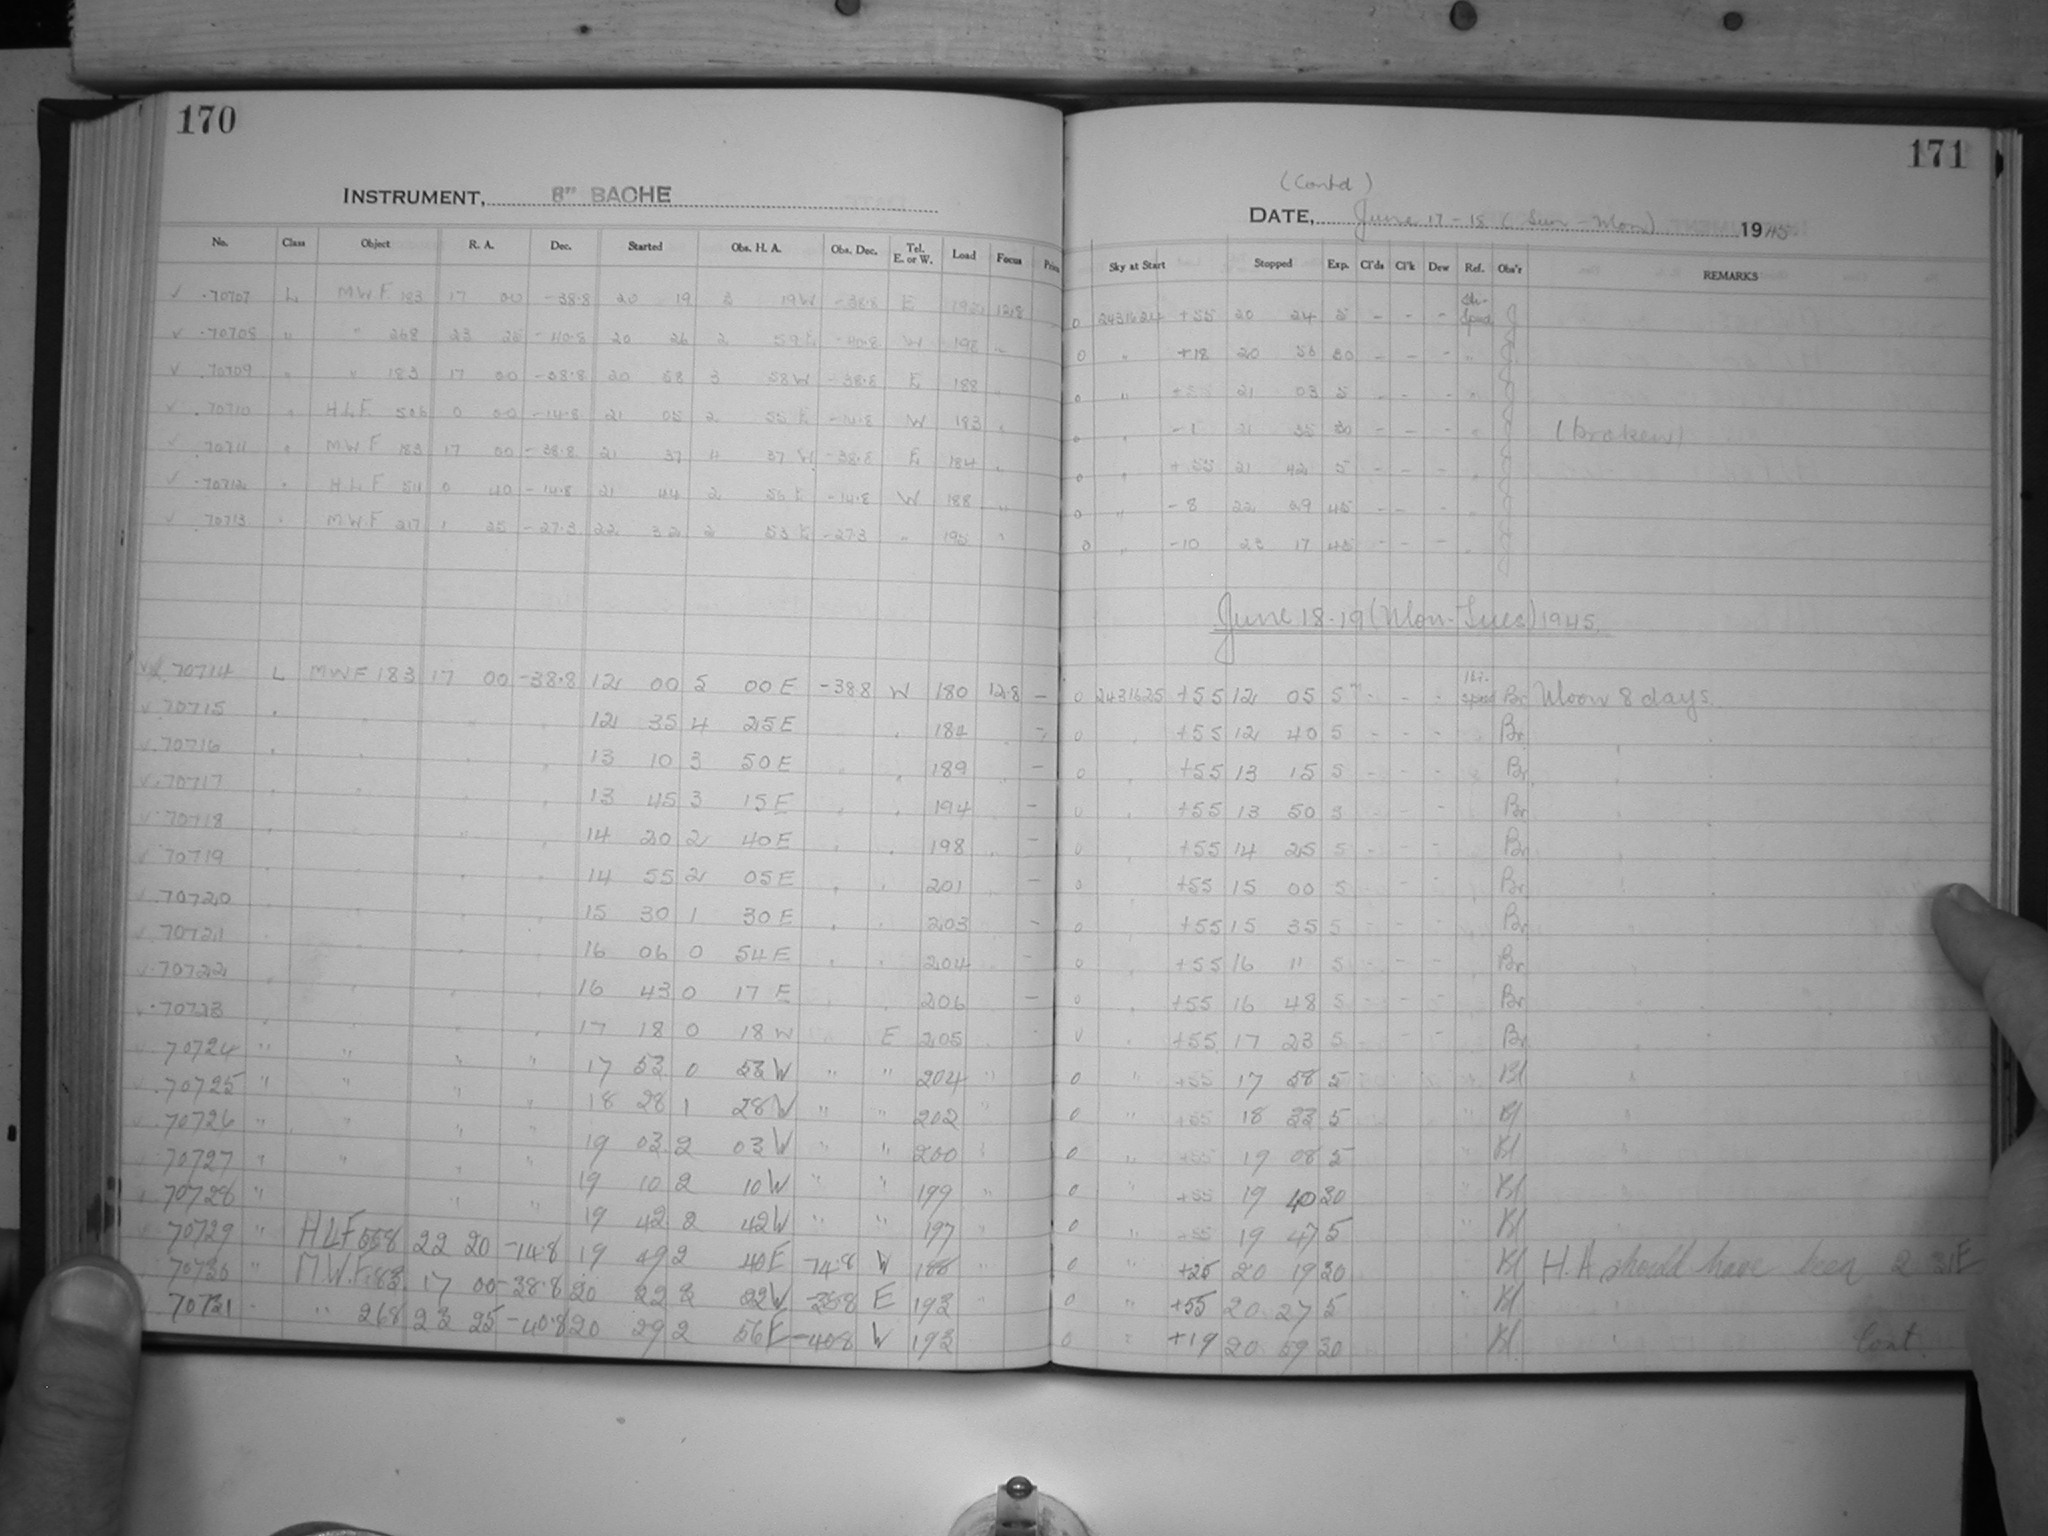 170
INSTRUMENT, 8" BACHE
No. Class Object R. A. Dec. Started Obs. H. A. Obs. Dec. Tel. E. or W. Load Focus
.70707 L MWF 183 17 00 -38.8 20 19 3 19W -38.8 E 192 12.8
.70708 " " 268 23 25 -40.8 20 26 2 59E -40.8 W 198 "
.70709 " " 183 17 00 -38.8 20 58 3 58W -38.8 E 188
.70710 " HLF 506 0 00 -14.8 21 05 2 55E -14.8 W 183
.70711 " MWF 183 17 00 -38.8 21 37 4 37W -38.8 E 184
.70712 " HLF 511 0 40 -14.8 21 44 2 56E -14.8 W 188
.70713 " MWF 217 1 25 -27.3 22 32 2 53E -27.3 " 195
70714 L MWF 183 17 00 -38.8 12 00 5 00E -38.8 W 180 12.8 -
.70715 12 35 4 25E 184 -
.70716 13 10 3 50E 189 -
.70717 13 45 3 15E 194 -
.70718 14 20 2 40E 198 -
.70719 14 55 2 05E 201 -
.70720 15 30 1 30E 203 -
.70721 16 06 0 54E 204 -
.70722 16 43 0 17E 206 -
.70723 17 18 0 18W E 205
.70724 " " " " 17 53 0 53W " " 204 "
.70725 " " " " 18 28 1 28W " " 202 "
.70726 " " " " 19 03 2 03W " " 200 "
70727 " " " " 19 10 2 10W " " 199 "
70728 " " " 19 42 2 42W " " 197 "
70729 " HLF 558 22 20 -14.8 19 49 2 40E -14.8 W 188
70730 " M.W.F. 183 17 00 -38.8 20 22 3 22W -38.8 E 193
70731 " 268 23 25 -40.8 20 29 2 56E -40.8 W 193
171
(Contd)
DATE, June 17-18 (Sun-Mon) 1945
Sky at Start Stopped Exp. Cl'ds Cl'k Dew Ref. Obs'r REMARKS
0 2431624 +55 20 24 5 - - - J
0 " +18 20 56 30 - - - " J
0 " +55 21 03 5 - - - " J
" -1 21 35 30 - - - J (broken)
0 " +55 21 42 5 - - - J
0 " -8 22 29 45 - - - J
0 " -10 23 17 45 - - - J
June 18-19 (Mon-Tues) 1945.
0 2431625 +55 12 05 5 - - - Br Moon 8 days.
0 +55 12 40 5 - - - Br
0 +55 13 15 5 - - - Br
0 +55 13 50 5 - - - Br
0 +55 14 25 5 - - - Br
0 +55 15 00 5 - - Br
0 +55 15 35 5 - - - Br
0 +55 16 11 5 - - - Br
0 +55 16 48 5 - - - Br
+55 17 23 5 - - - Br
0 " +55 17 58 5 Bl
0 " +55 18 33 5 Bl
0 " +55 19 08 5 Bl
0 " +55 19 40 30 Bl
0 " +55 19 47 5 Bl
0 " +25 20 19 30 Bl H.A should have been 2 31E
0 " +55 20 27 5 Bl
0 " +19 20 59 30 Bl
Cont.